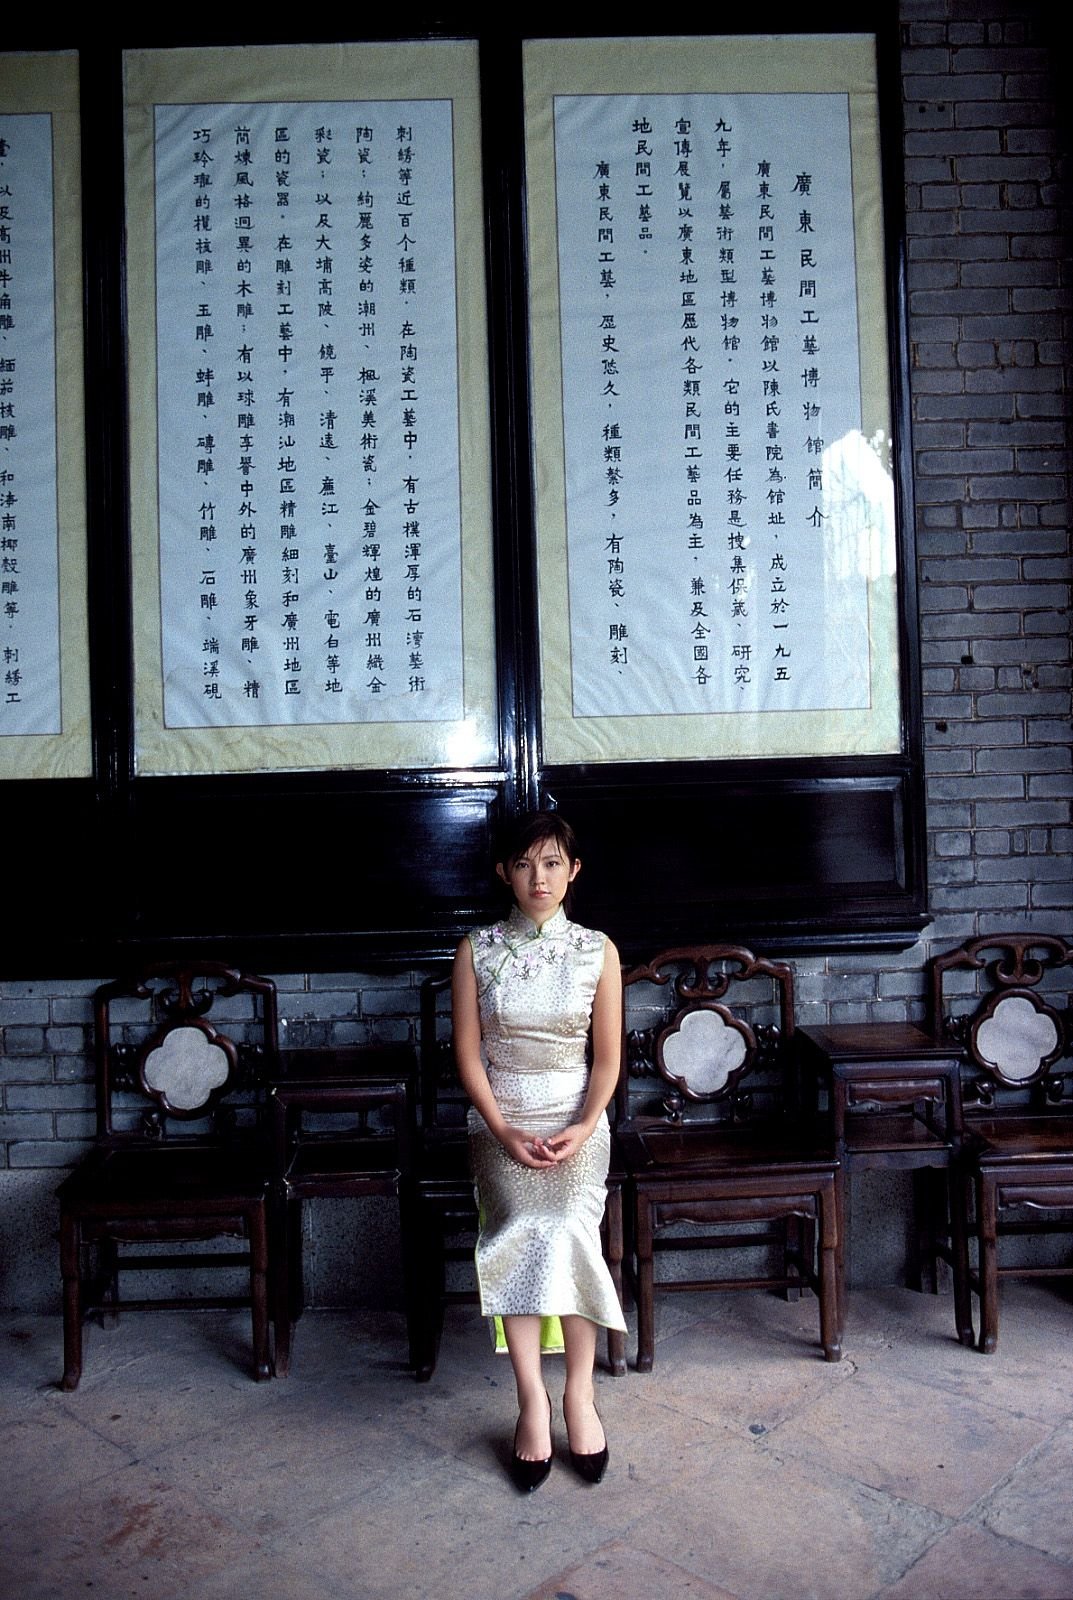 廣東民間工藝博物館簡介
廣東民間工藝博物館以陳氏書院為館址，成立於一九五
九年，屬藝術類型博物館。它的主要任務是搜集保藏、研究、
宣傳展覽以廣東地區歷代各類民間工藝品為主，兼及全國各
地民間工藝品。
廣東民間工藝，歷史悠久，種類繁多，有陶瓷、雕刻、
刺綉等近百个種類。在陶瓷工藝中，有古樸渾厚的石灣藝術
陶瓷；絢麗多姿的潮州、楓溪美術瓷；金碧輝煌的廣州織金
彩瓷；以及大埔高陂、饒平、清遠、廉江、臺山、電白等地
區的瓷器。在雕刻工藝中，有潮汕地區精雕細刻和廣州地區
簡煉風格迥異的木雕；有以球雕享譽中外的廣州象牙雕、精
巧玲瓏的欖核雕、玉雕、蚌雕、磚雕、竹雕、石雕、端溪硯
以及高州牛角雕、緬茄核雕、和海南椰殼雕等。刺綉工